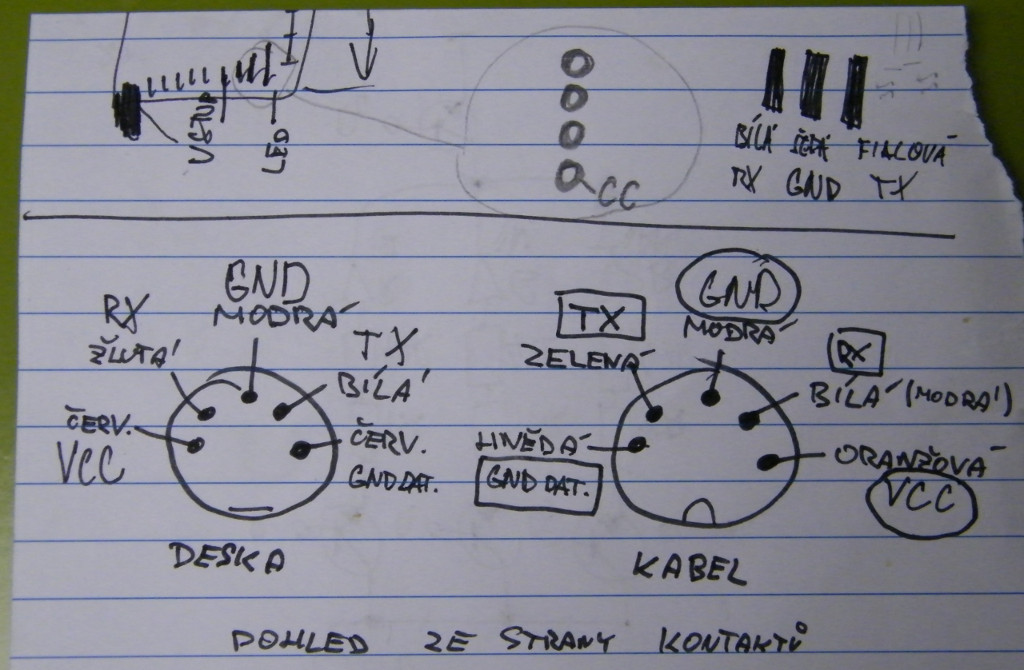 VSTUP
LED
CC
BÍLÁ ŠEDÁ FIALOVÁ
RX GND TX
GND
MODRÁ
RX
ŽLUTÁ
TX
BÍLÁ
ČERV.
VCC
ČERV.
GND DAT.
DESKA
GND
MODRÁ
TX
ZELENÁ
RX
BÍLÁ (MODRÁ)
HNĚDÁ
GND DAT.
ORANŽOVÁ
VCC
KABEL
POHLED ZE STRANY KONTAKTŮ